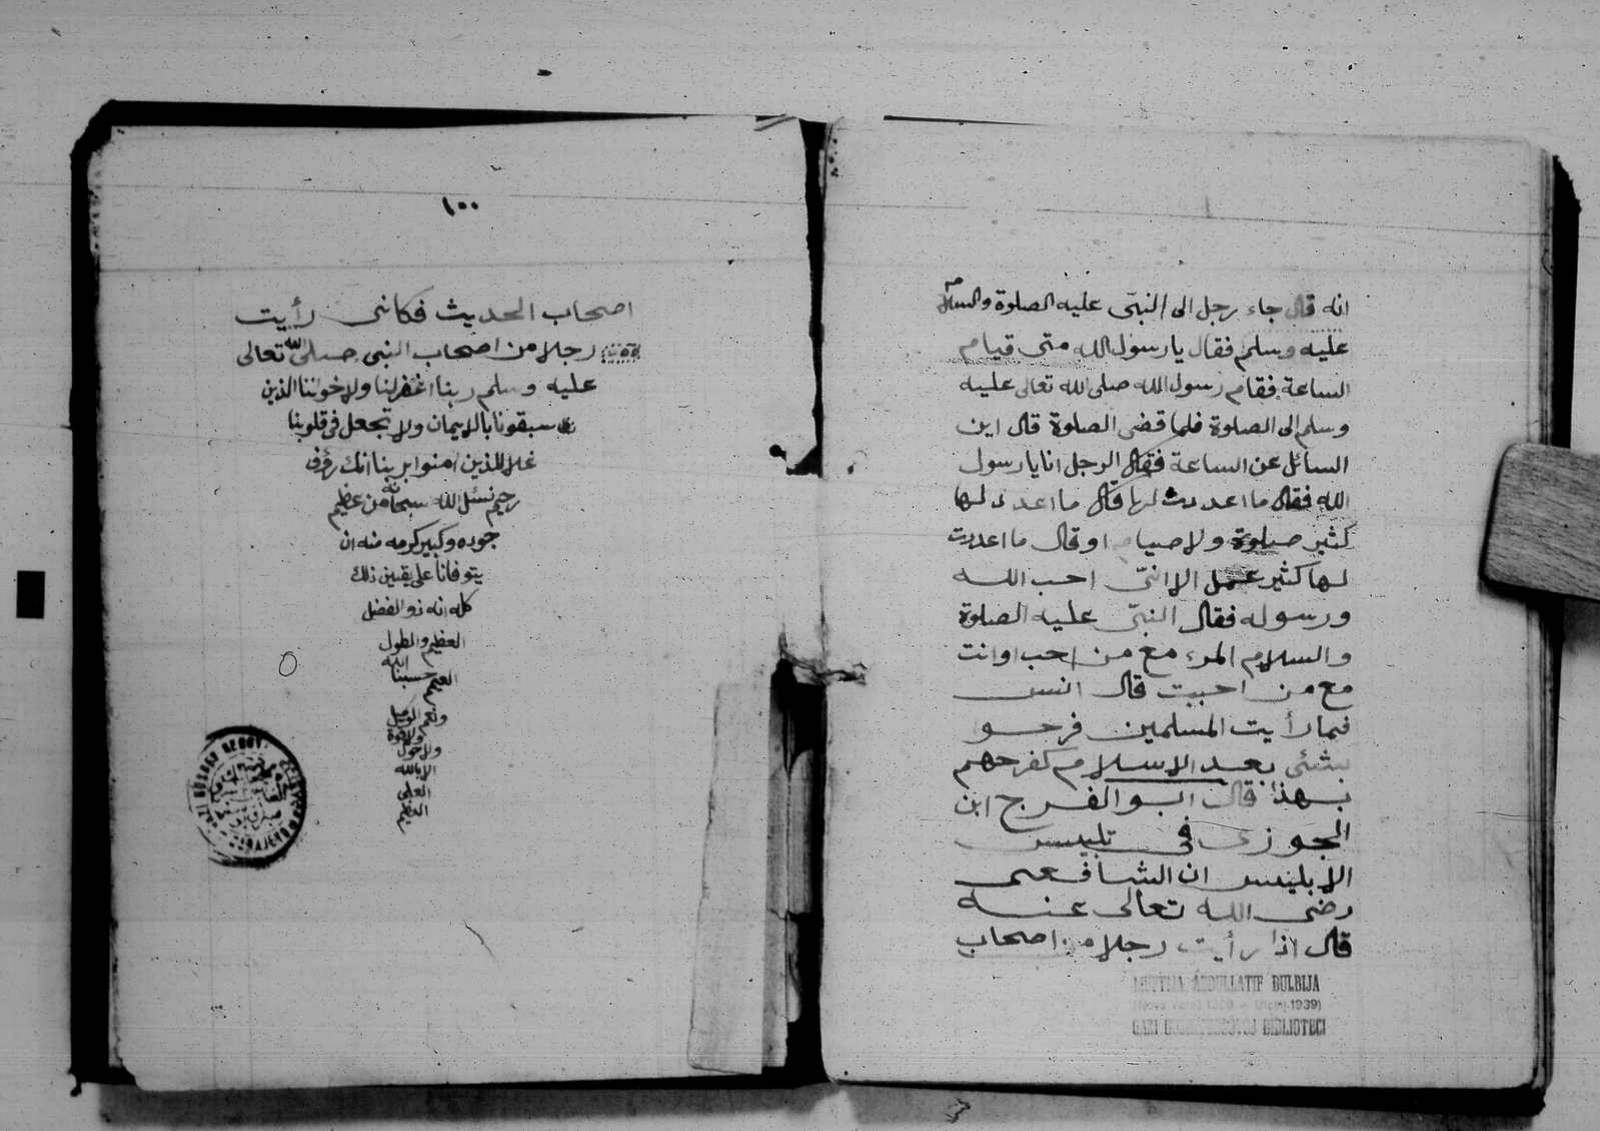 انه قال جاء رجل الى النبى عليه الصلوة والسلام
عليه وسلم فقال يا رسول الله متى قيام
الساعة فقام رسول الله صلى الله تعالى عليه
وسلم الى الصلوة فلما قضى الصلوة قال اين
السائل عن الساعة فقال الرجل انا يا رسول
الله فقال ما اعددت لها قال ما اعددت لها
كثير صلوة ولا صيام او قال ما اعددت
لها كثير عمل الا انّى احب الله
ورسوله فقال النبىّ عليه الصلوة
والسلام المرء مع من احب او انت
مع من احببت قال انس
فما رأيت المسلمين فرحوا
بشئى بعد الاسلام كفرحهم
بهذا قال ابو الفرج ابن
الجوزى فى تلبيس
الابليس ان الشافعى
رضى الله تعالى عنه
قال اذا رأيت رجلا من اصحاب
ABDULLATIF DULBIJA
1939)
GAZI BIBLIOTECI
١٠٠
اصحاب الحديث فكانى رأيت
رجلا من اصحاب النبى صلى الله تعالى
عليه وسلم ربنا اغفر لنا ولاخواننا الذين
سبقونا بالايمان ولا تجعل فى قلوبنا
غلا للذين امنوا ربنا انك رؤف
رحيم نسئل الله سبحانه من عظيم
جوده وكبير كرمه منه ان
يتوفانا على يقين ذلك
كله انه ذو الفضل
العظيم والطول
العميم حسبنا الله
ونعم الوكيل
ولا حول ولا قوة
الا بالله
العلى
العظيم